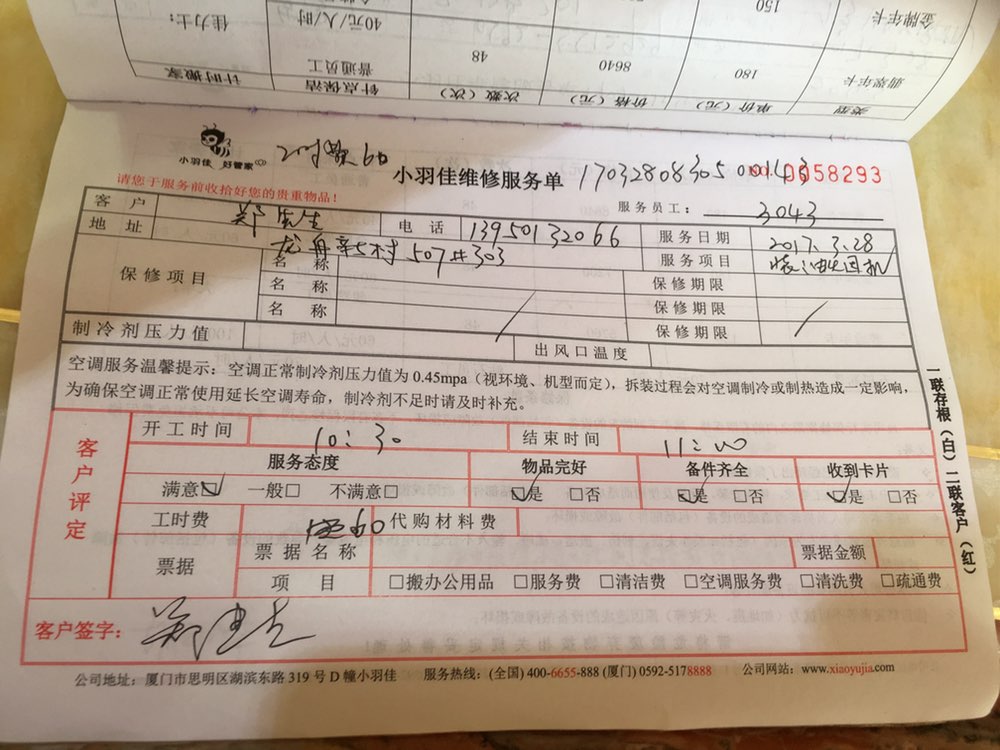 类型 单价（元） 价格（元） 次数（次） 针点保洁 计时搬家
翡翠年卡 180 8640 48 普通员工
金牌年卡 150 40元/人/时 佳力士：
小羽佳 好管家
小羽佳维修服务单 1703280830500143 0058293
请您于服务前收拾好您的贵重物品！
服务员工： 3043
客户 郑先生 电话 13950132066 服务日期 2017.3.28
地址 龙舟新村507#303 服务项目 装油烟机
保修项目 名称 保修期限
名称 保修期限
名称 保修期限
制冷剂压力值 出风口温度
空调服务温馨提示：空调正常制冷剂压力值为 0.45mpa（视环境、机型而定），拆装过程会对空调制冷或制热造成一定影响，
为确保空调正常使用延长空调寿命，制冷剂不足时请及时补充。
一联存根（白）二联客户（红）
客户评定
开工时间 10：30 结束时间 11：00
服务态度 物品完好 备件齐全 收到卡片
满意☑ 一般□ 不满意□ ☑是 □否 ☑是 □否 ☑是 □否
工时费 60 代购材料费
票据 票据名称 票据金额
项目 □搬办公用品 □服务费 □清洁费 □空调服务费 □清洗费 □疏通费
客户签字：
公司地址：厦门市思明区湖滨东路 319 号 D 幢小羽佳 服务热线：(全国) 400-6655-888 (厦门) 0592-5178888 公司网站：www.xiaoyujia.com